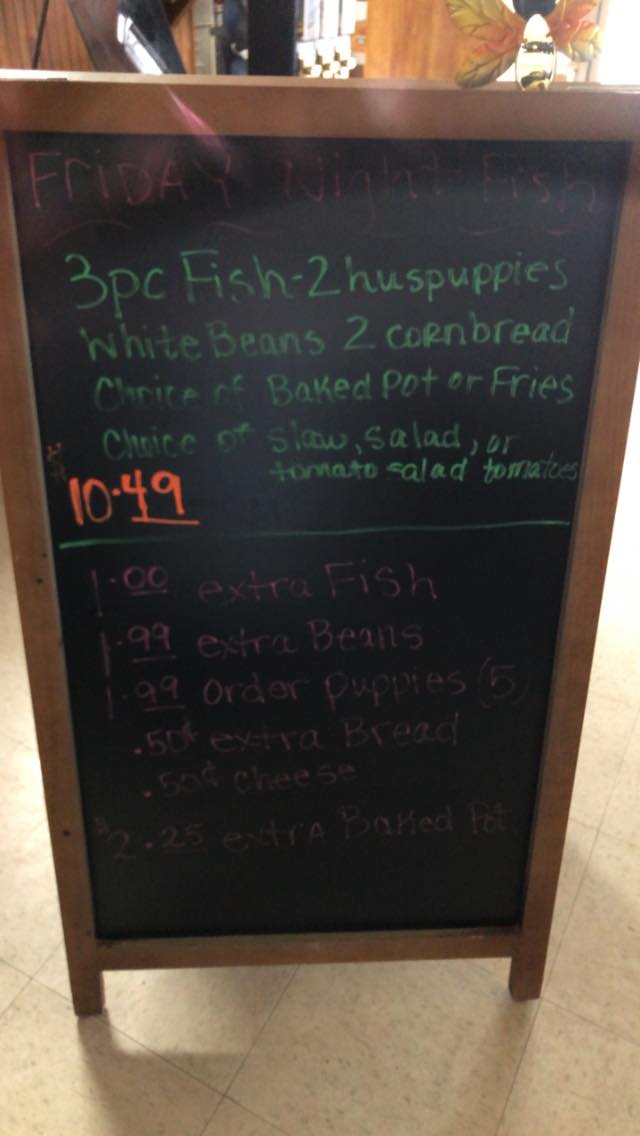 FriDAY Night Fish
3pc Fish-2 huspuppies
White Beans 2 cornbread
Choice of Baked Pot or Fries
Choice of slaw, salad, or
tomato salad tomatoes
$10.49
1.00 extra Fish
1.99 extra Beans
1.99 order puppies (5)
.50¢ extra Bread
.50¢ cheese
$2.25 extra Baked Pot